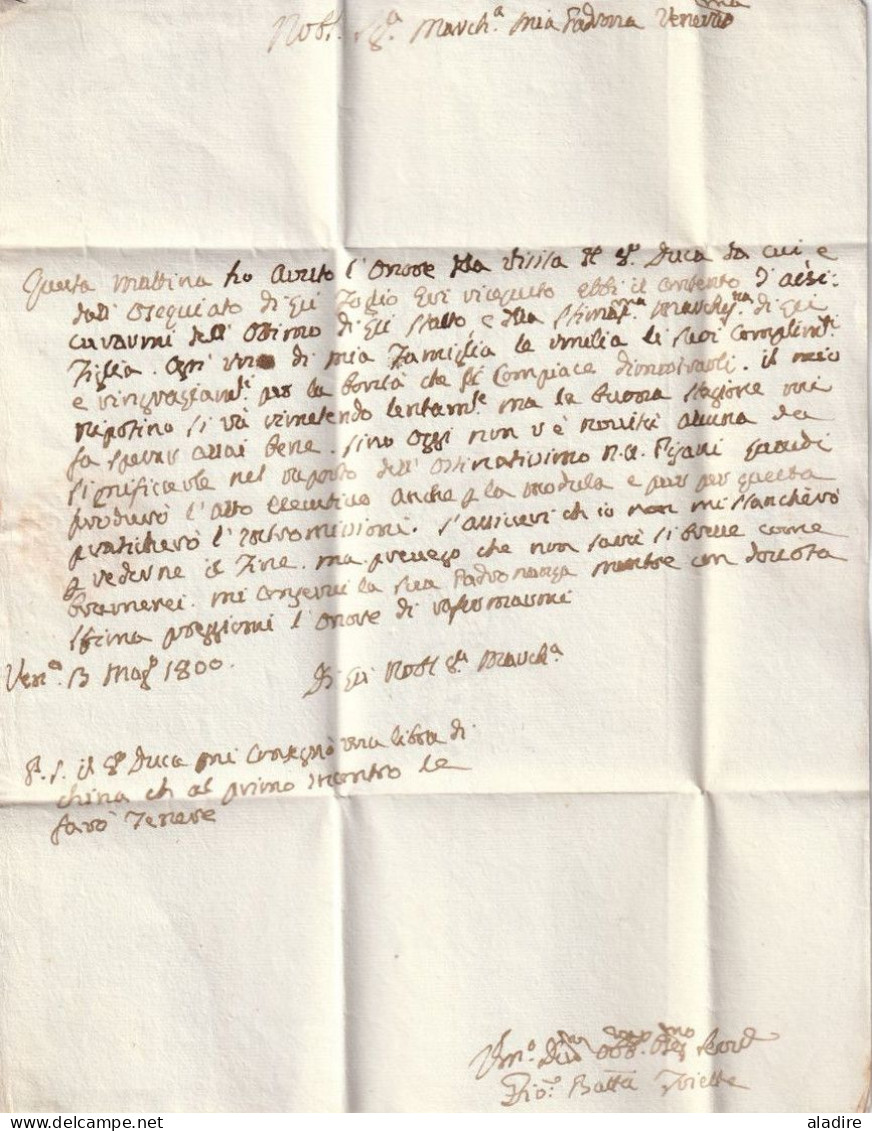 Nobl. Sig.ª March.ª mia Padrona Vener.ma
Questa mattina ho avuto l'onore della visita del S.r Duca da cui, e
dall'ossequiato di Lei Foglio ebbi il contento d'assi:
curarmi dell'ottimo di Lei stato, e della stimat.ma March.na di Lei
Figlia. Ogni uno di mia Famiglia le umilia li suoi complim.ti
e ringraziam.ti per la bontà che si compiace dimostrarli. il mio
nipotino si và rimetendo lentam.te ma la buona stagione mi
fa sperar assai bene. Sino oggi non v'è novità alcuna da
significarle nel proposito dell'ostinatissimo N.H. Pisani quindi
produrò l'atto esecutivo anche p la modula e pur per questa
praticherò l'intromissioni. S'assicuri ch'io non mi stancherò
p vederne il fine. ma prevego che non sarà sì breve come
bramerei. mi conservi la sua Padronanza mentre con dovuta
stima preggiomi l'onore di rassermarmi
Ven.ª 13 Mag.o 1800.
Di Lei Nobl Sig.ª March.ª
P.S. il S.r Duca mi consegnò una libra di
china ch al primo incontro le
farò tenere
Um.o Div.mo Obb.mo Oss.mo Serv.e
Gio: Batta
aladire
delcampe.net